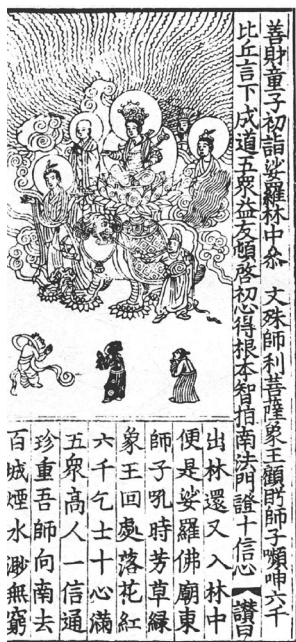 善財童子初詣娑羅林中叅 文殊師利菩薩象王顧眄師子嚬呻六千
比丘言下成道五眾益友頓啓初心得根本智指南法門證十信心 讚曰
出林還又入林中
便是娑羅佛廟東
師子吼時芳草綠
象王回處落花紅
六千乞士十心滿
五眾高人一信通
珍重吾師向南去
百城煙水渺無窮